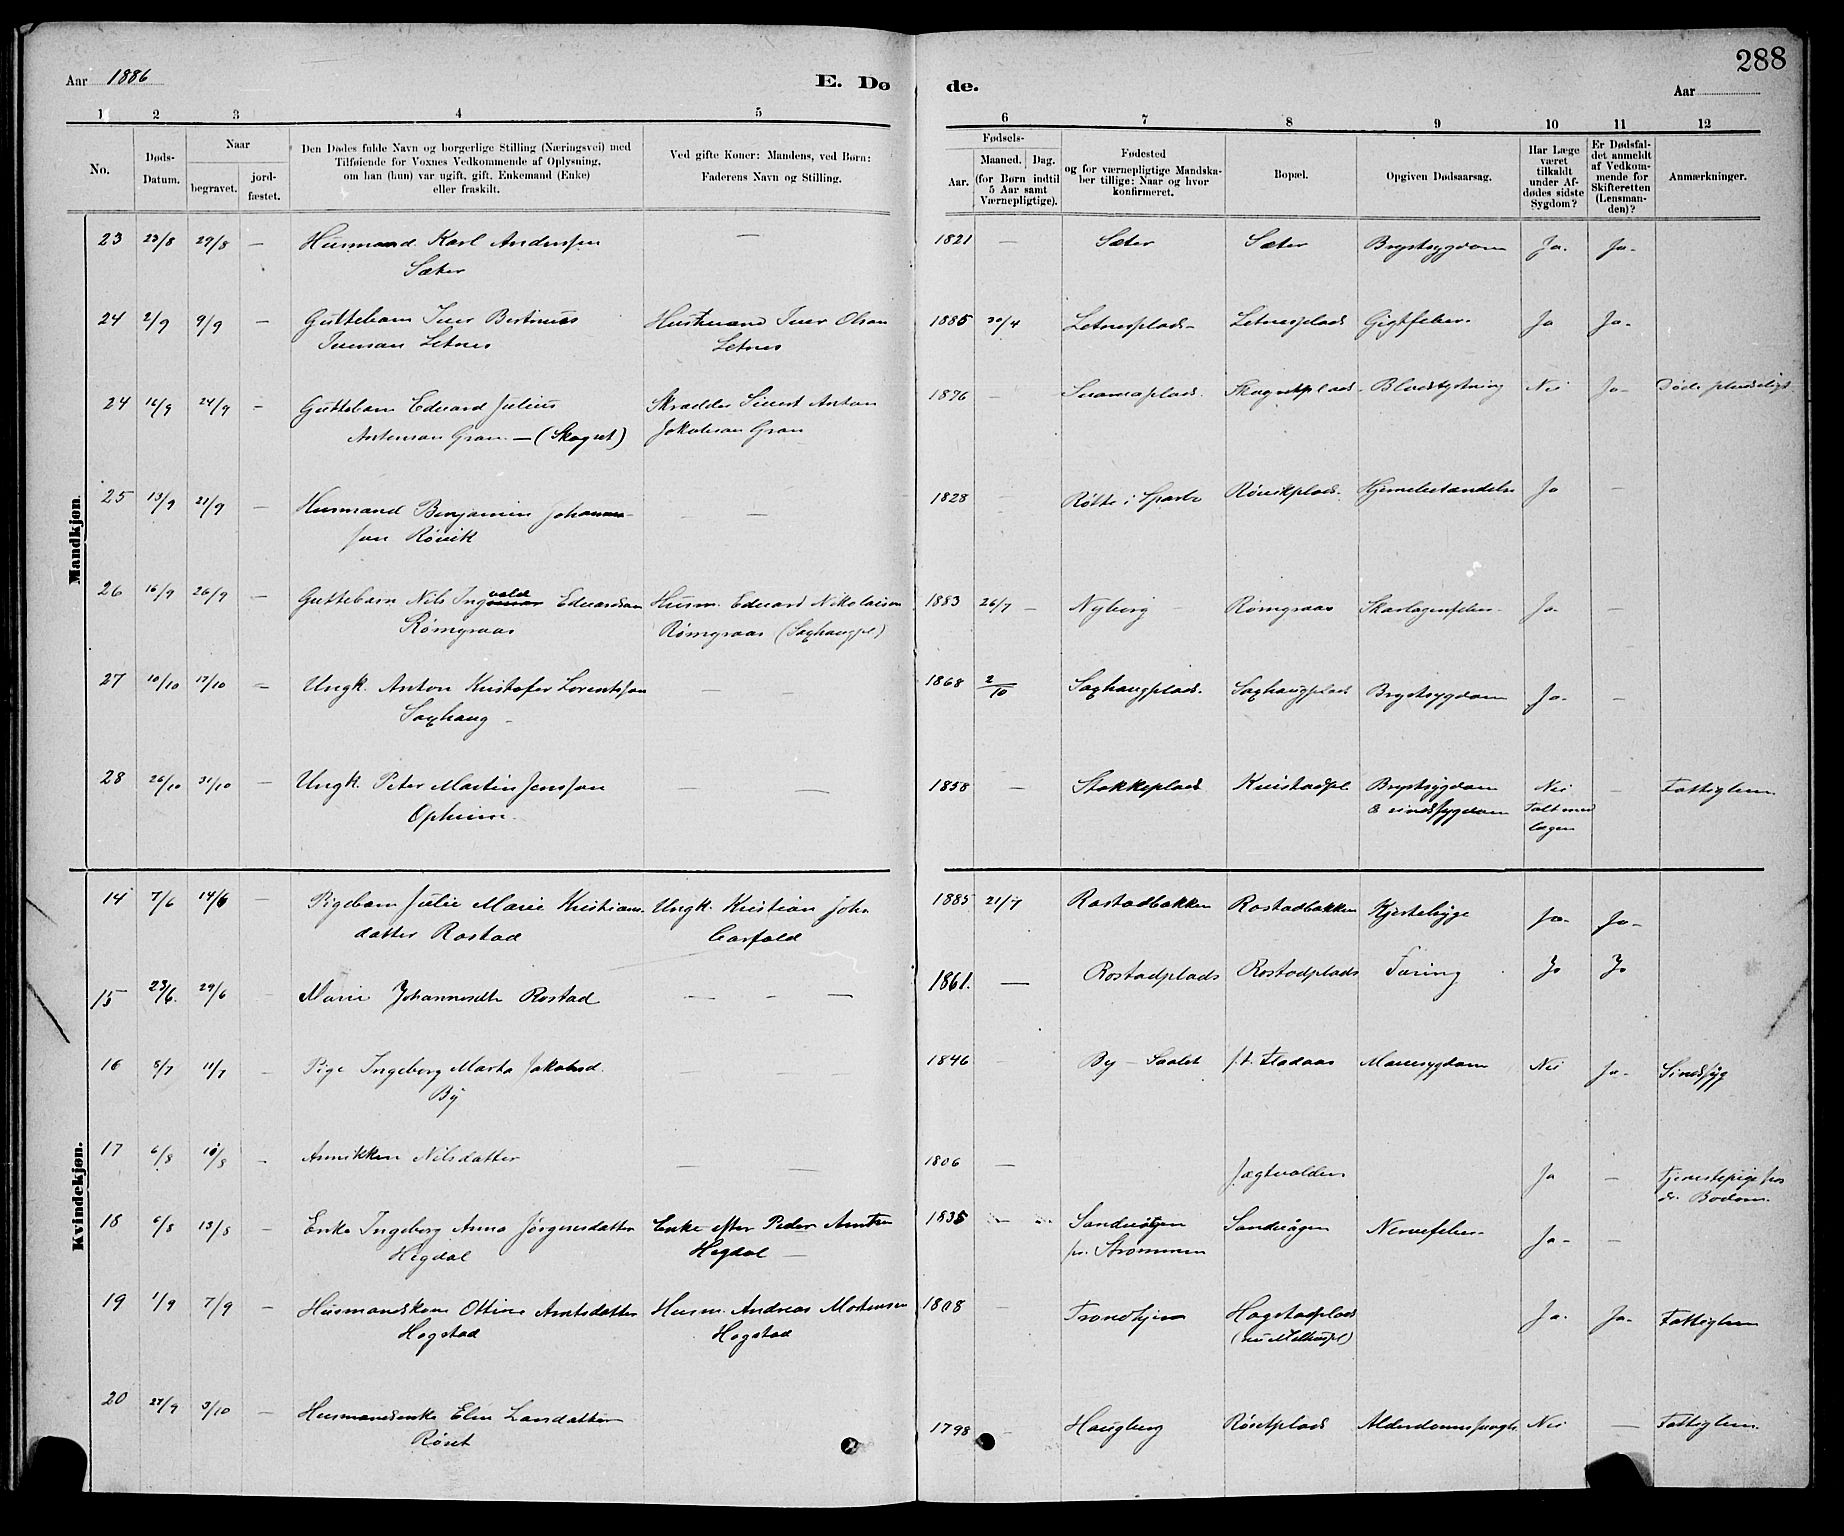 Aar 1886
E. Dø
de.
Aar
288
1 2 3 4 5 6 7 8 9 10 11 12
No.
Døds-
Datum.
Naar
begravet.
jord-
fæstet.
Den Dødes fulde Navn og borgerlige Stilling (Næringsvei) med
Tilføiende for Voxnes Vedkommende af Oplysning,
om han (hun) var ugift, gift, Enkemand (Enke)
eller fraskilt.
Ved gifte Koner: Mandens, ved Børn:
Faderens Navn og Stilling.
Fødsels-
Aar.
Maaned. Dag.
(for Børn indtil
5 Aar samt
Værnepligtige).
Fødested
og for værnepligtige Mandska-
ber tillige: Naar og hvor
konfirmeret.
Bopæl.
Opgiven Dødsaarsag.
Har Læge
været
tilkaldt
under Af-
dødes sidste
Sygdom?
Er Dødsfal-
det anmeldt
af Vedkom-
mende for
Skifteretten
(Lensman-
den)?
Anmærkninger.
Mandkjøn.
23 23/8 29/8 — Husmand Karl Anderssen — 1821 — Sæter Sæter Brystsygdom Ja. Ja-
Sæter
24 2/9 9/9 — Guttebarn Iver Bertinus Husmand Iver Olsen 1885 30/4 Letnesplads- Letnesplads Gigtfeber. Ja Ja-
Iversen Letnes Letnes
24 16/9 24/9 — Guttebarn Edvard Julius Skrædder Sivert Anton 1876 — Skognetplads Blodstyrtning Nei Ja- Døde pludseligt
Antonsen Gran — (Skognet) Jakobsen Gran
25 13/9 21/9 — Husmand Benjamin Johannes- — — 1828 — Røtte i Sparbo Røvikplads. Hjernebetændelse Ja —
sen Røvik
26 16/9 26/9 — Guttebarn Nils Ingvald Edvardsen Husm. Edvard Nikolaisen 1883 26/7 — Nyborg Rømgraas Skarlagensfeber. Ja. —
Rømgraas Rømgraas (Saxhaugpl)
27 10/10 17/10 — Ungk. Anton Kristofer Lorentssen — — 1868 2/10 Saxhaugplads. Saxhaugplads Brystsygdom Ja. —
Saxhaug -
28 26/10 31/10 — Ungk. Peter Martin Jenssen — — 1858 — Stokkeplads Brystsygdom Nei — Fattiglem
Opheim. & sindssygdom Talt med
lægen
Kvindekjøn.
14 7/6 14/6 — Pigebarn Julie Marie Kristians- Ungk. Kristian John 1885 21/7 Rostadbakken Rostadbakken Kjertelsyge Ja- Ja-
datter Rostad
15 23/6. 29/6 — Marie Johannesdtr Rostad — — — 1861. — Rostadplads Rostadplads Tæring Ja Ja
16 8/7 11/7 — Pige Ingeborg Marta Jakobsd. — — 1846 — By — Saalet Mavesygdom Nei Ja- Sindssyg
By
17 6/8 10/8 - Annikken Nilsdatter — — 1806 — Jægtvolden Ja — Tjenestepige hos
dr. Bodom.
18 6/8 13/8 — Enke Ingeborg Anna Jørgensdatter Enke efter Peder Arntsen 1835 — Sandvågen Nervefeber- Ja- —
Hegdal Hegdal — pr. Strømmen
19 1/9 7/9 — Husmandskone Ottine Arntsdatter Husm. Andreas Mortensen 1808 — Trondhjem Hogstadplads Ja. Ja- Fattiglem
Hogstad Hogstad
20 27/9 3/10 — Husmandsenke Elen Larsdatter 1798 — Haugberg Røsetplads Alderdomssvagh. Nei — Fattiglem.
Røset